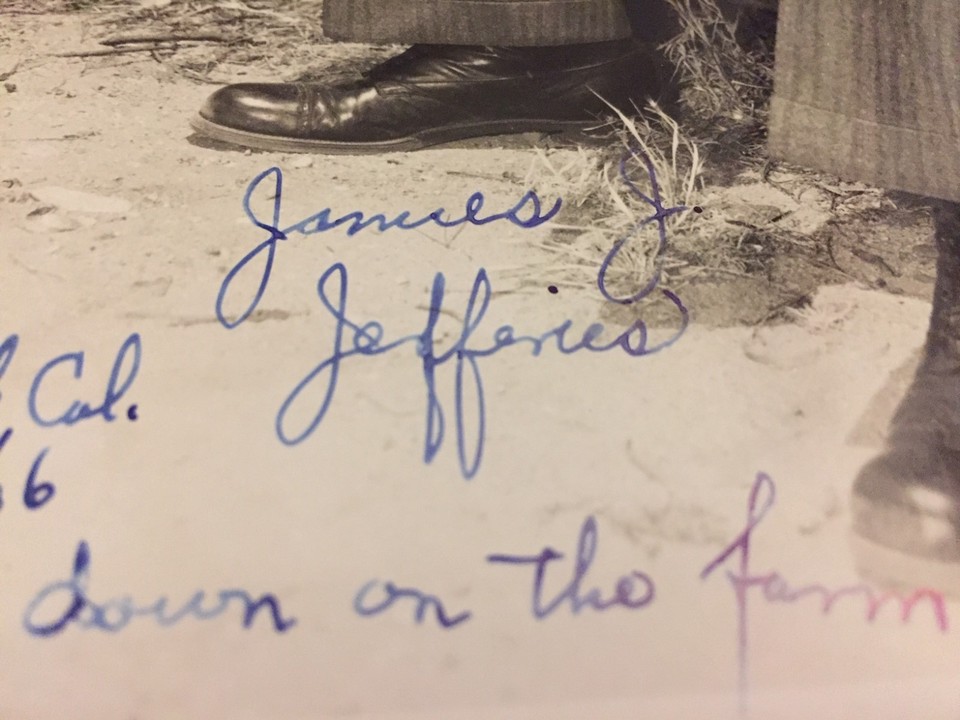 James J.
Jefferies
Cal.
6
down on the farm